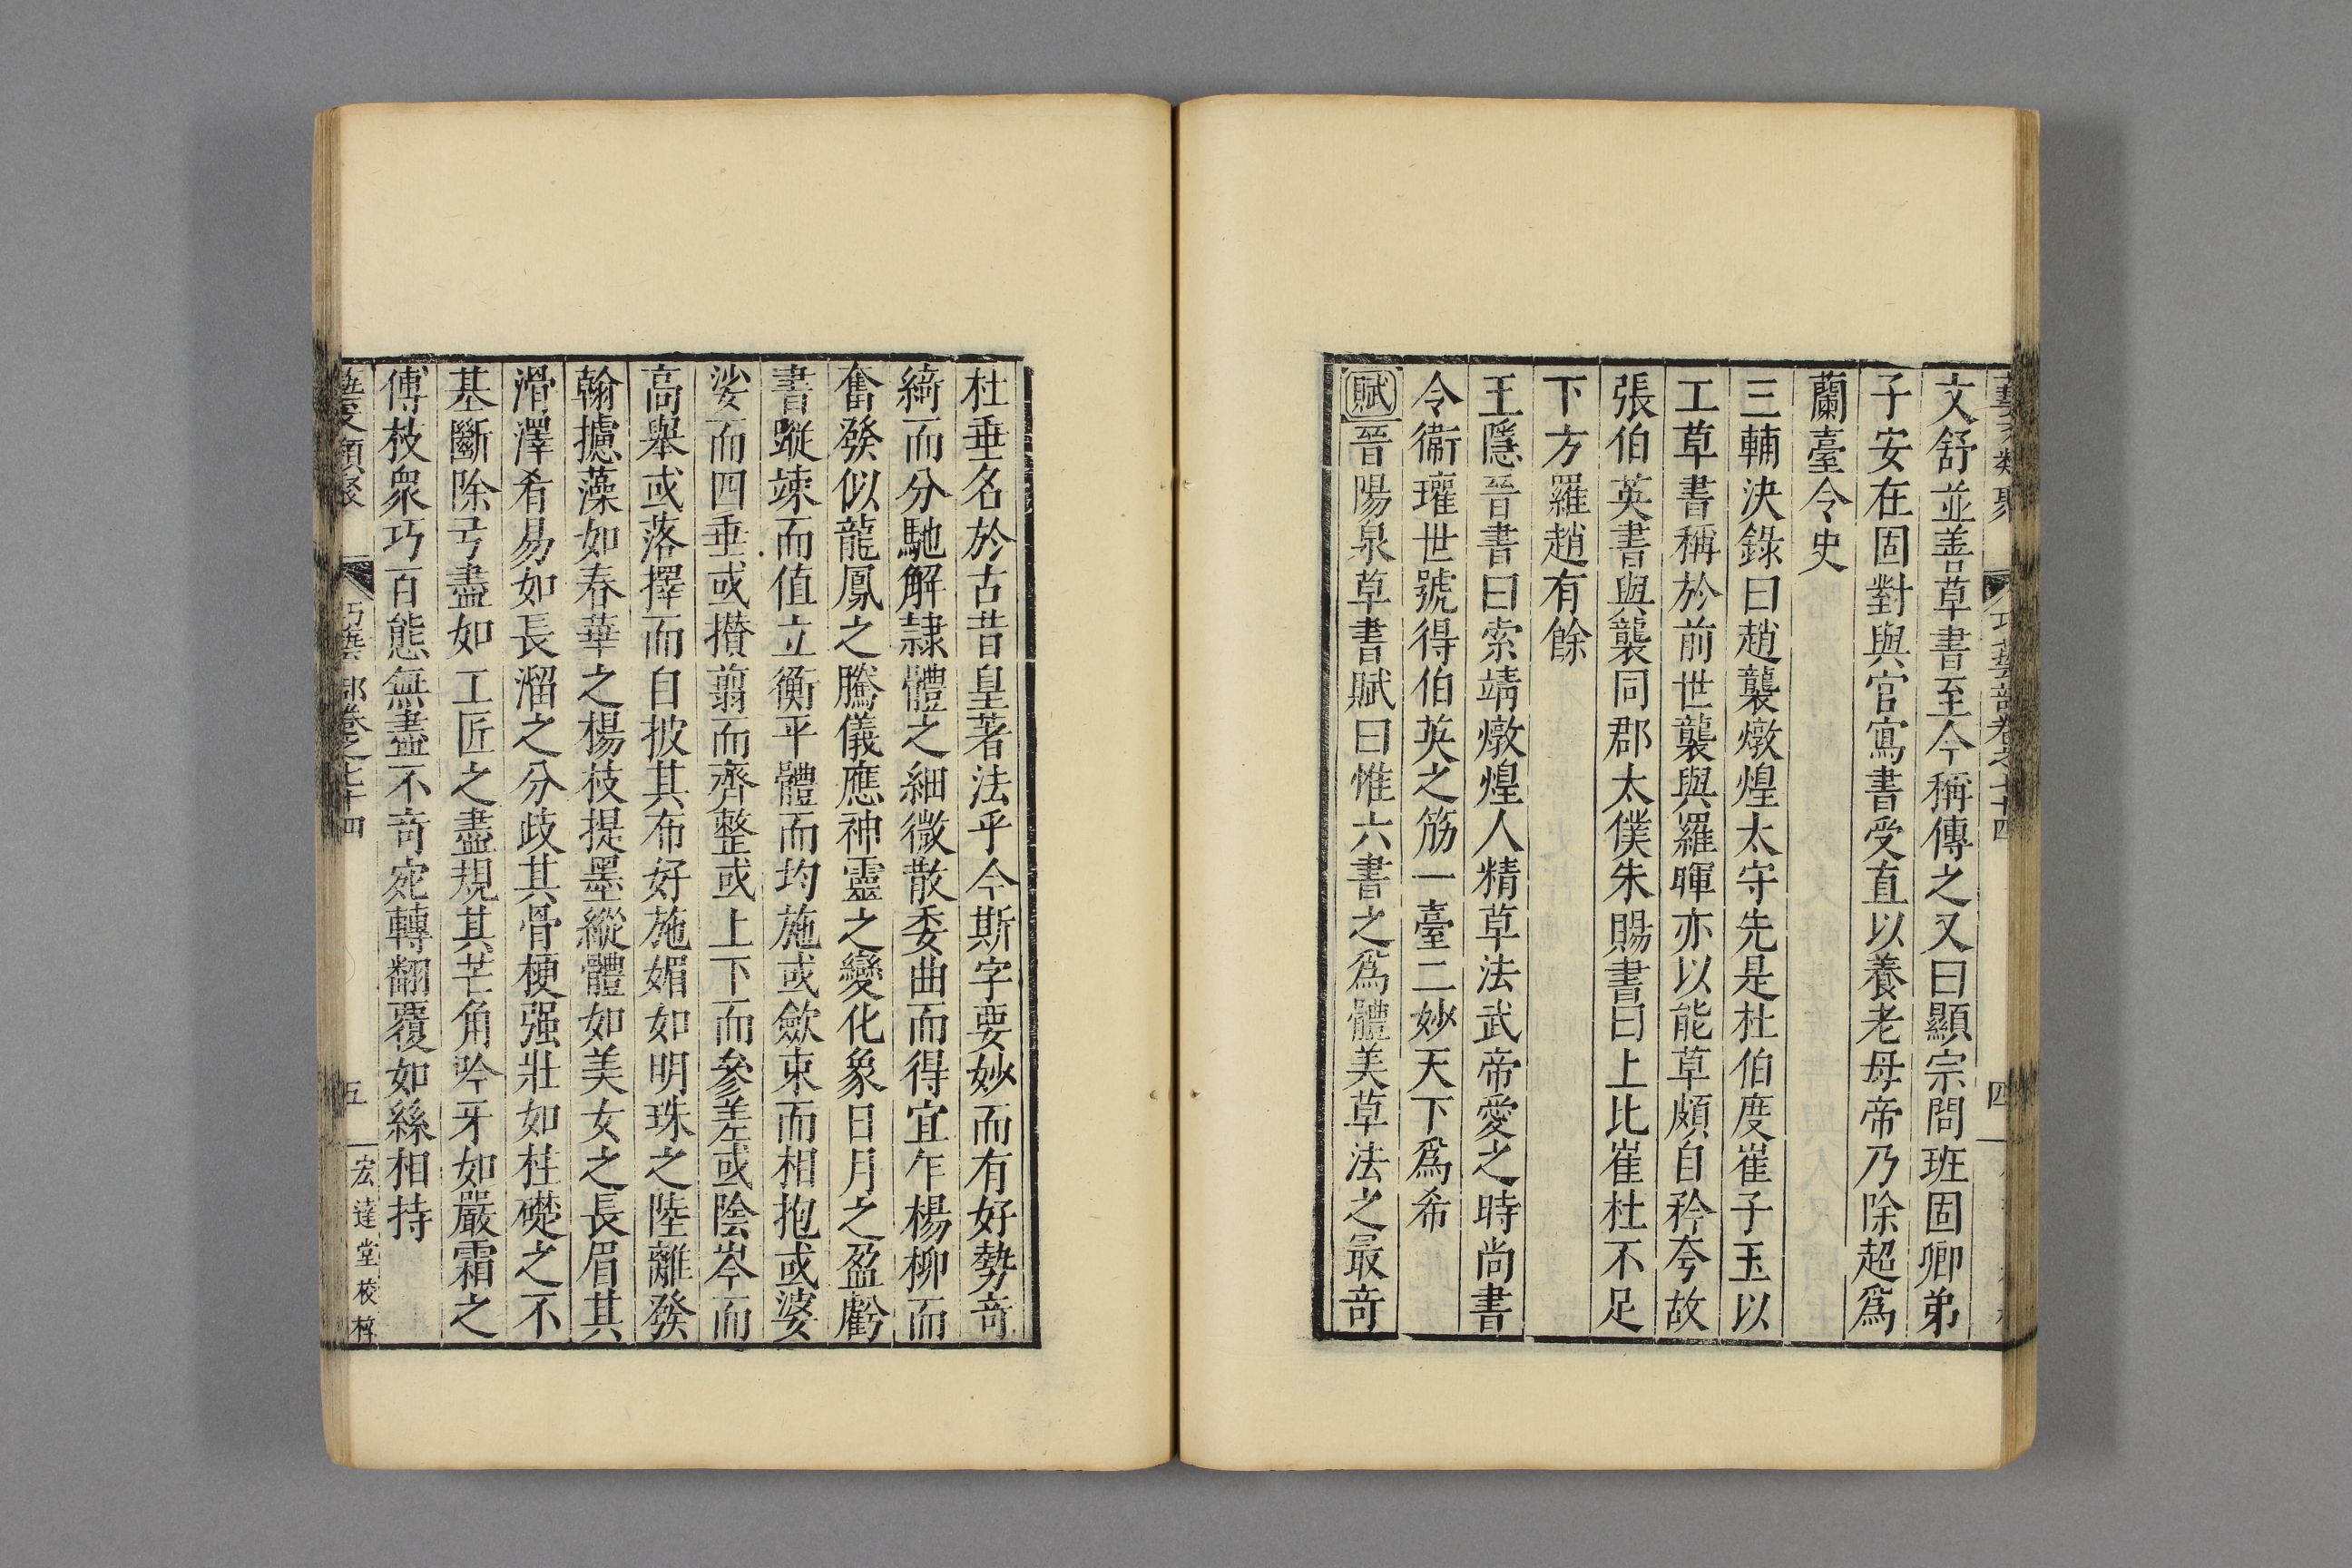 文舒並善草書至今稱傳之又曰顯宗問班固卿弟
子安在固對與官寫書受直以養老母帝乃除超爲
蘭臺令史
三輔決錄曰趙襲燉煌太守先是杜伯度崔子玉以
工草書稱於前世襲與羅暉亦以能草頗自矜夸故
張伯英書與襲同郡太僕朱賜書曰上比崔杜不足
下方羅趙有餘
王隱晉書曰索靖燉煌人精草法武帝愛之時尚書
令衞瓘世號得伯英之筋一臺二妙天下爲希
賦晉陽泉草書賦曰惟六書之爲體美草法之最奇
杜垂名於古昔皇著法乎今斯字要妙而有好勢奇
綺而分馳解隷體之細微散委曲而得宜乍楊柳而
奮發似龍鳳之騰儀應神靈之變化象日月之盈虧
書蹤竦而值立衡平體而均施或歛束而相抱或婆
娑而四垂或攢翦而齊整或上下而參差或陰岑而
高舉或落擇而自披其布好施媚如明珠之陸離發
翰攄藻如春華之楊枝提墨縱體如美女之長眉其
滑澤肴易如長溜之分歧其骨梗强壯如柱礎之不
基斷除弓盡如工匠之盡規其芒角吟牙如嚴霜之
傅枝衆巧百態無盡不奇宛轉翻覆如絲相持
藝文類聚 巧藝部卷之七十四 五 宏達堂校栞